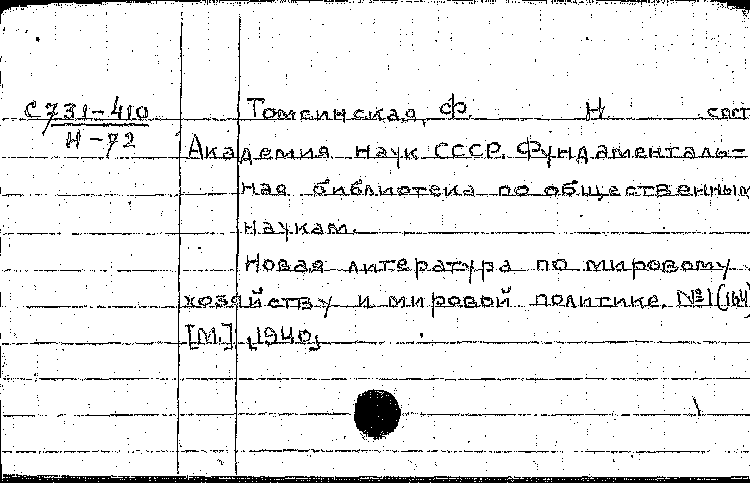 С731-410
Н-72
Томсинская, Ф. Н сост
Академия наук СССР. Фундаменталь-
ная библиотека по общественным
наукам.
Новая литература по мировому
хозяйству и мировой политике. №1(164)
[М.] 1940